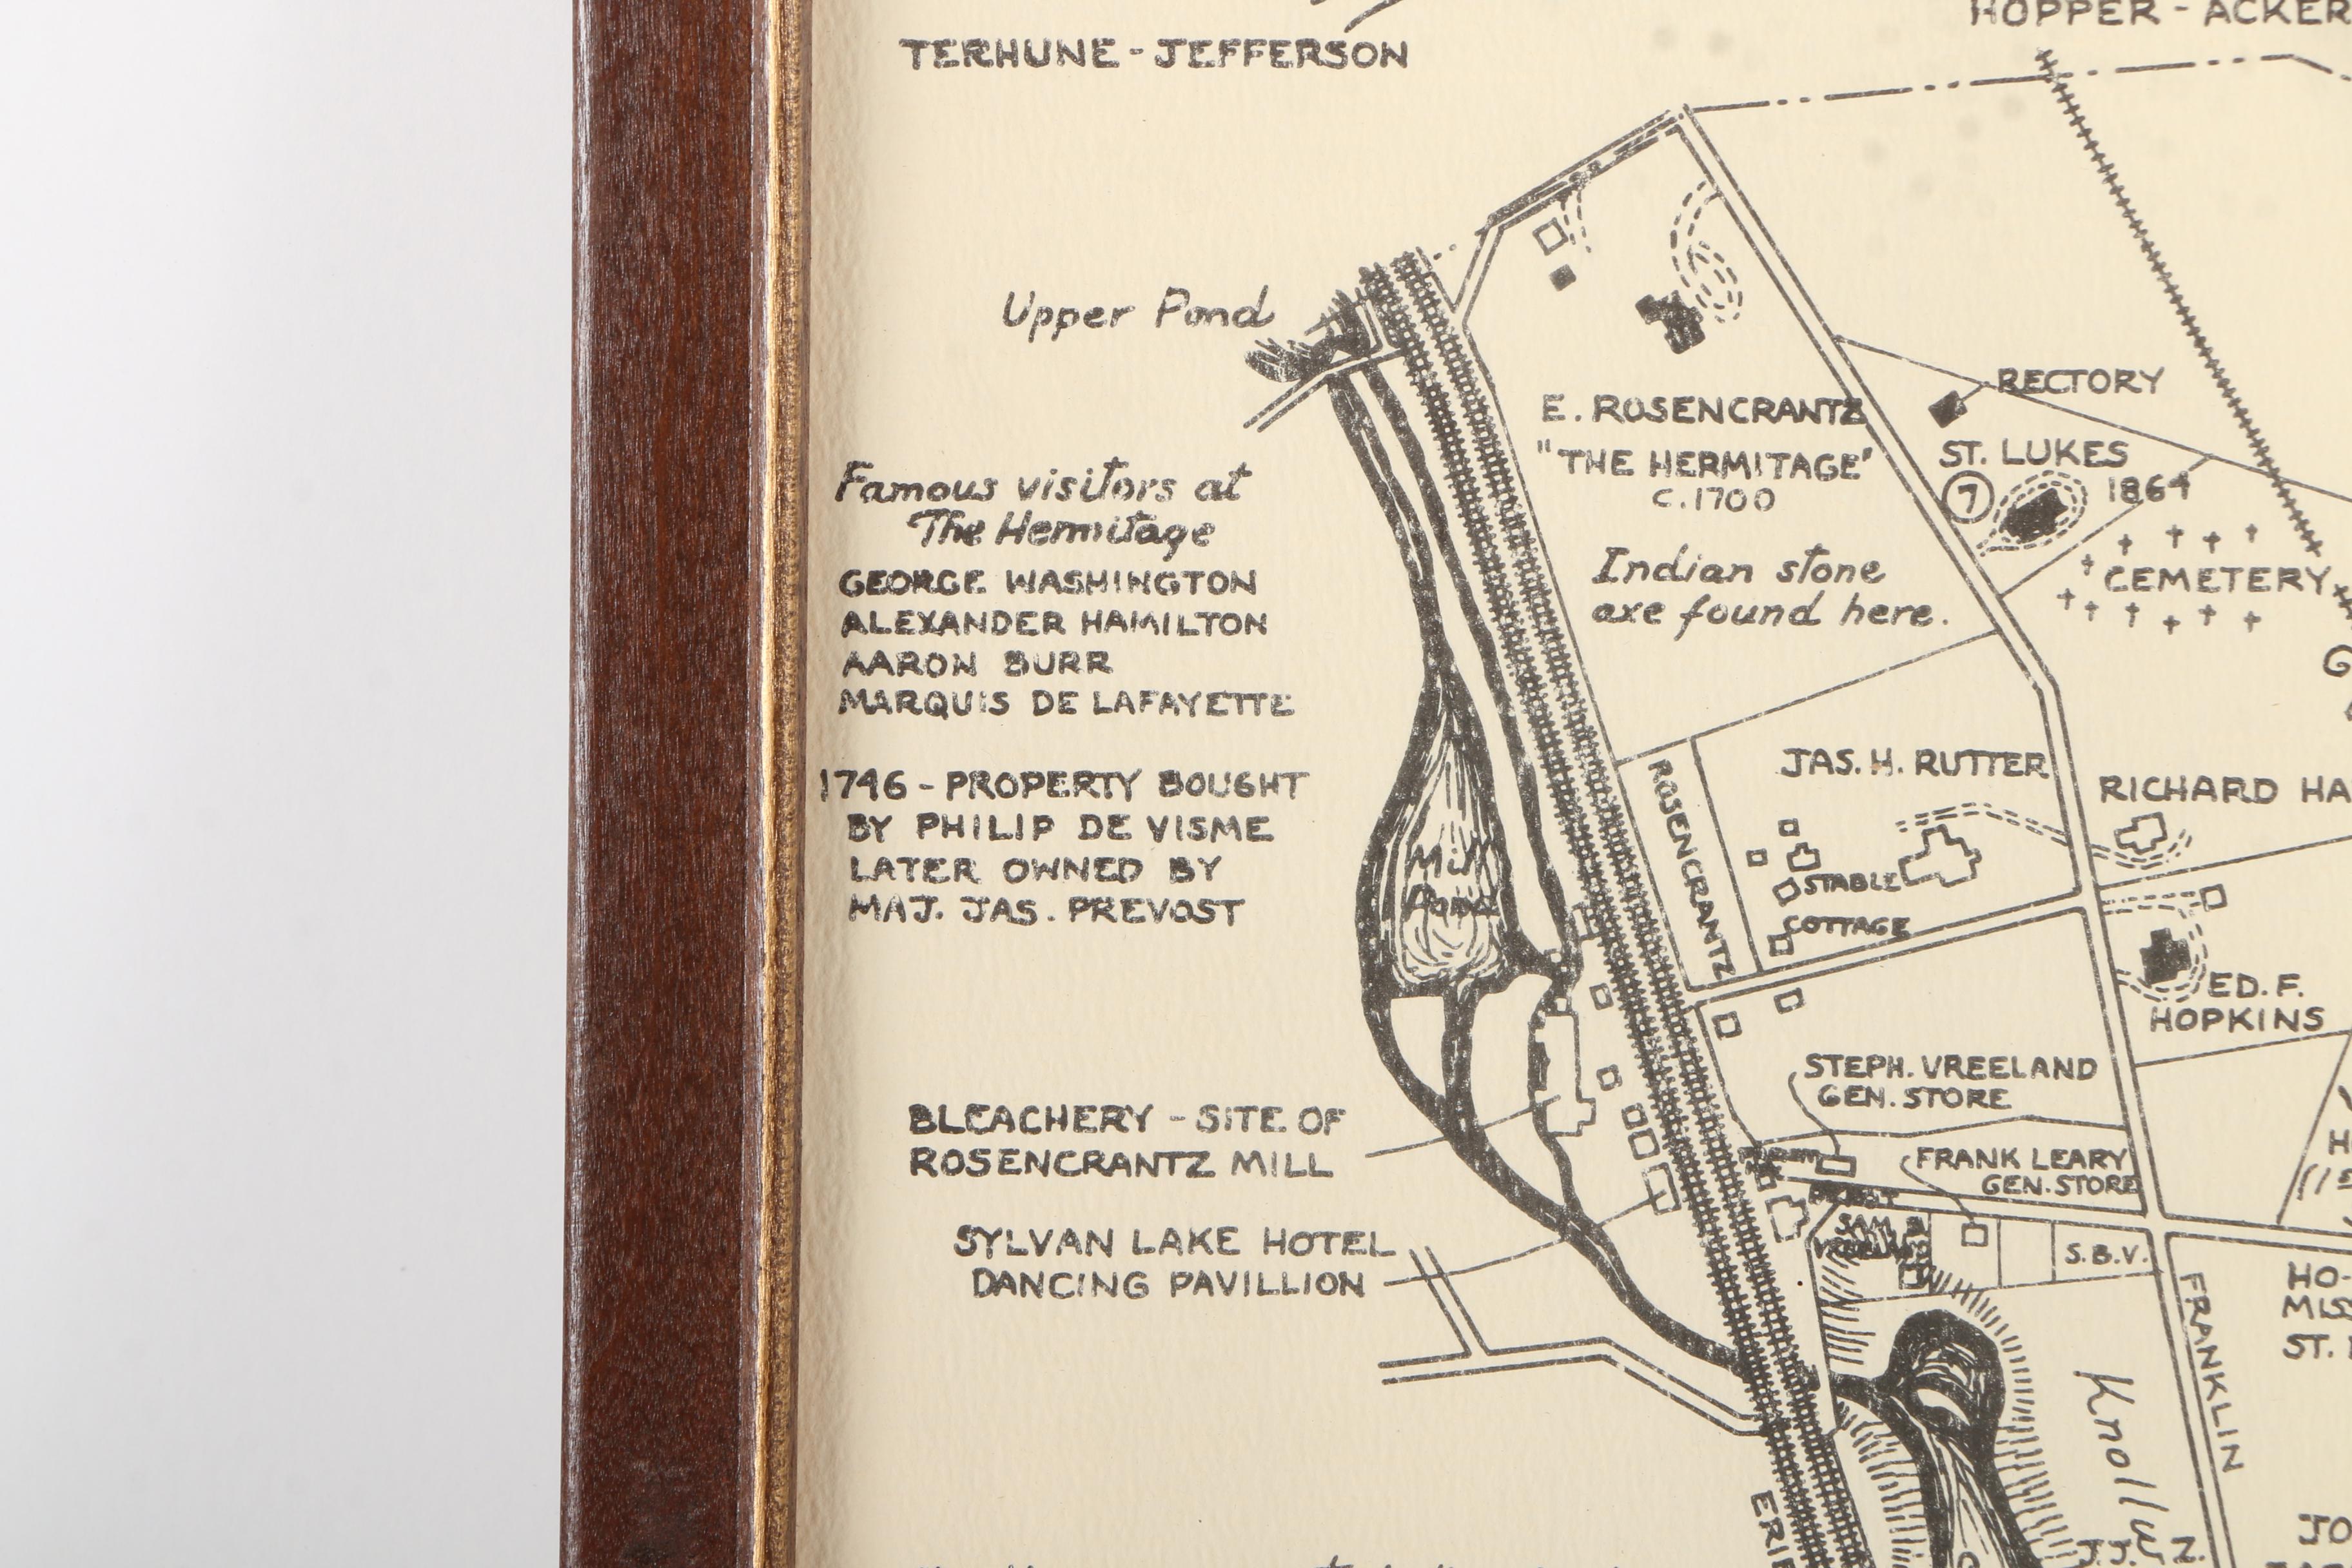 TERHUNE - JEFFERSON
HOPPER - ACKER
Upper Pond
E. ROSENCRANTZ
"THE HERMITAGE"
C.1700
Indian stone
axe found here.
RECTORY
ST. LUKES
7 1864
CEMETERY
Famous visitors at
The Hermitage
GEORGE WASHINGTON
ALEXANDER HAMILTON
AARON BURR
MARQUIS DE LAFAYETTE
1746 - PROPERTY BOUGHT
BY PHILIP DE VISME
LATER OWNED BY
MAJ. JAS. PREVOST
Mill
Pond
ROSENCRANTZ
JAS. H. RUTTER
STABLE
COTTAGE
RICHARD HA
ED. F.
HOPKINS
STEPH. VREELAND
GEN. STORE
FRANK LEARY
GEN. STORE
SAM. B.
S.B.V.
BLEACHERY - SITE OF
ROSENCRANTZ MILL
SYLVAN LAKE HOTEL
DANCING PAVILLION
FRANKLIN
HO-
MIS
ST.
Knolly
ERIE
JO
J.J. Z.